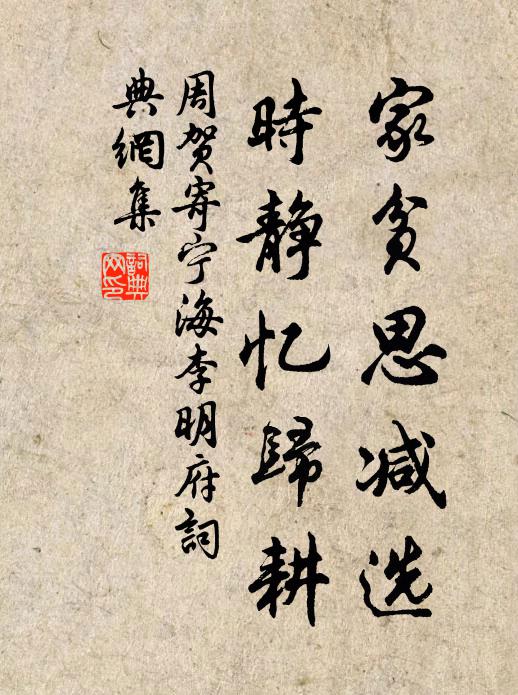 家贫思减选
時静忆歸耕
周贺寄宁海李明府詞
典網集
詞典
网印